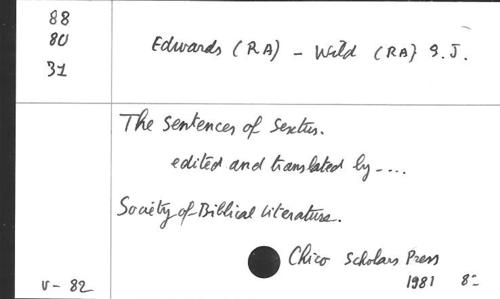 88
80
31
Edwards (RA) - Wild (RA) S.J.
The Sentences of Sextus.
edited and translated by-....
Society of Biblical Literature.
Chico Scholars Press
1981 8=
V-82